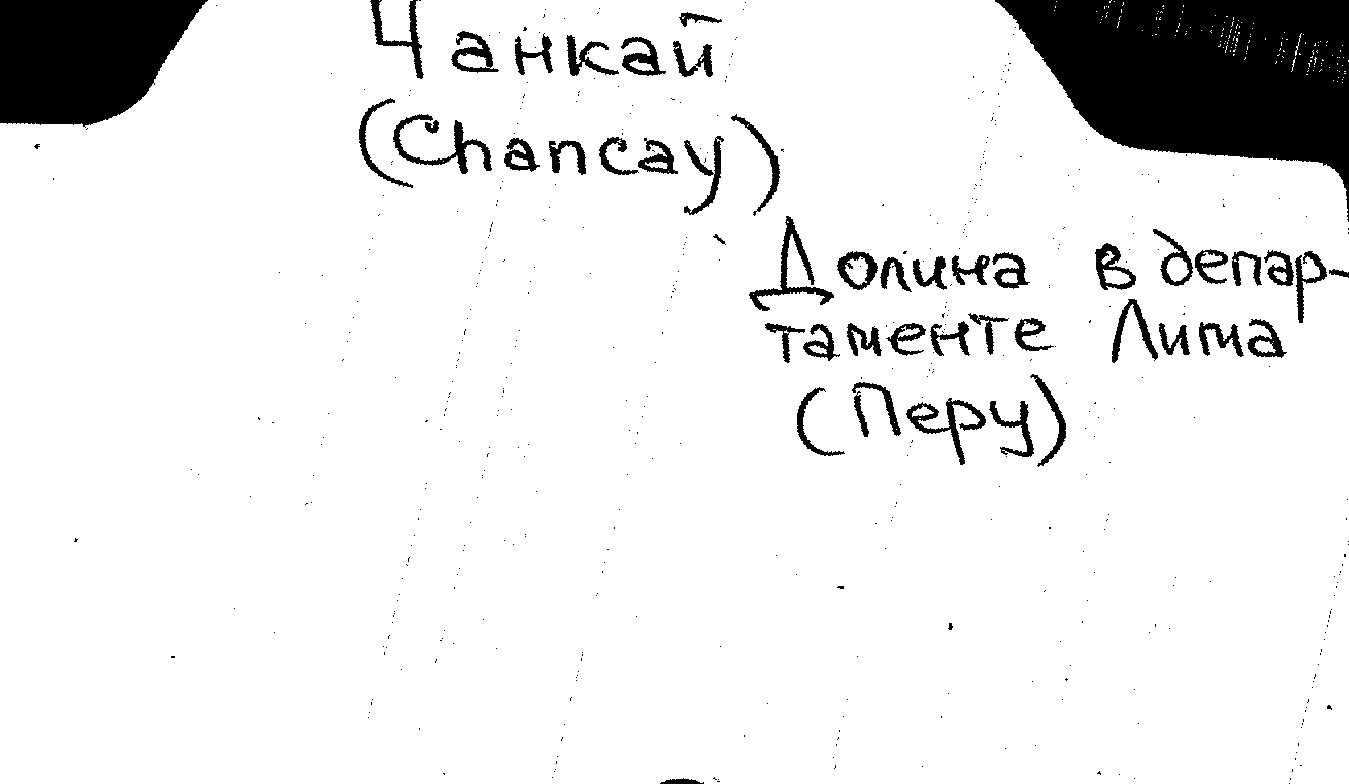 Чанкай
(Chancay)
Долина в депар-
таменте Лима
(Перу)